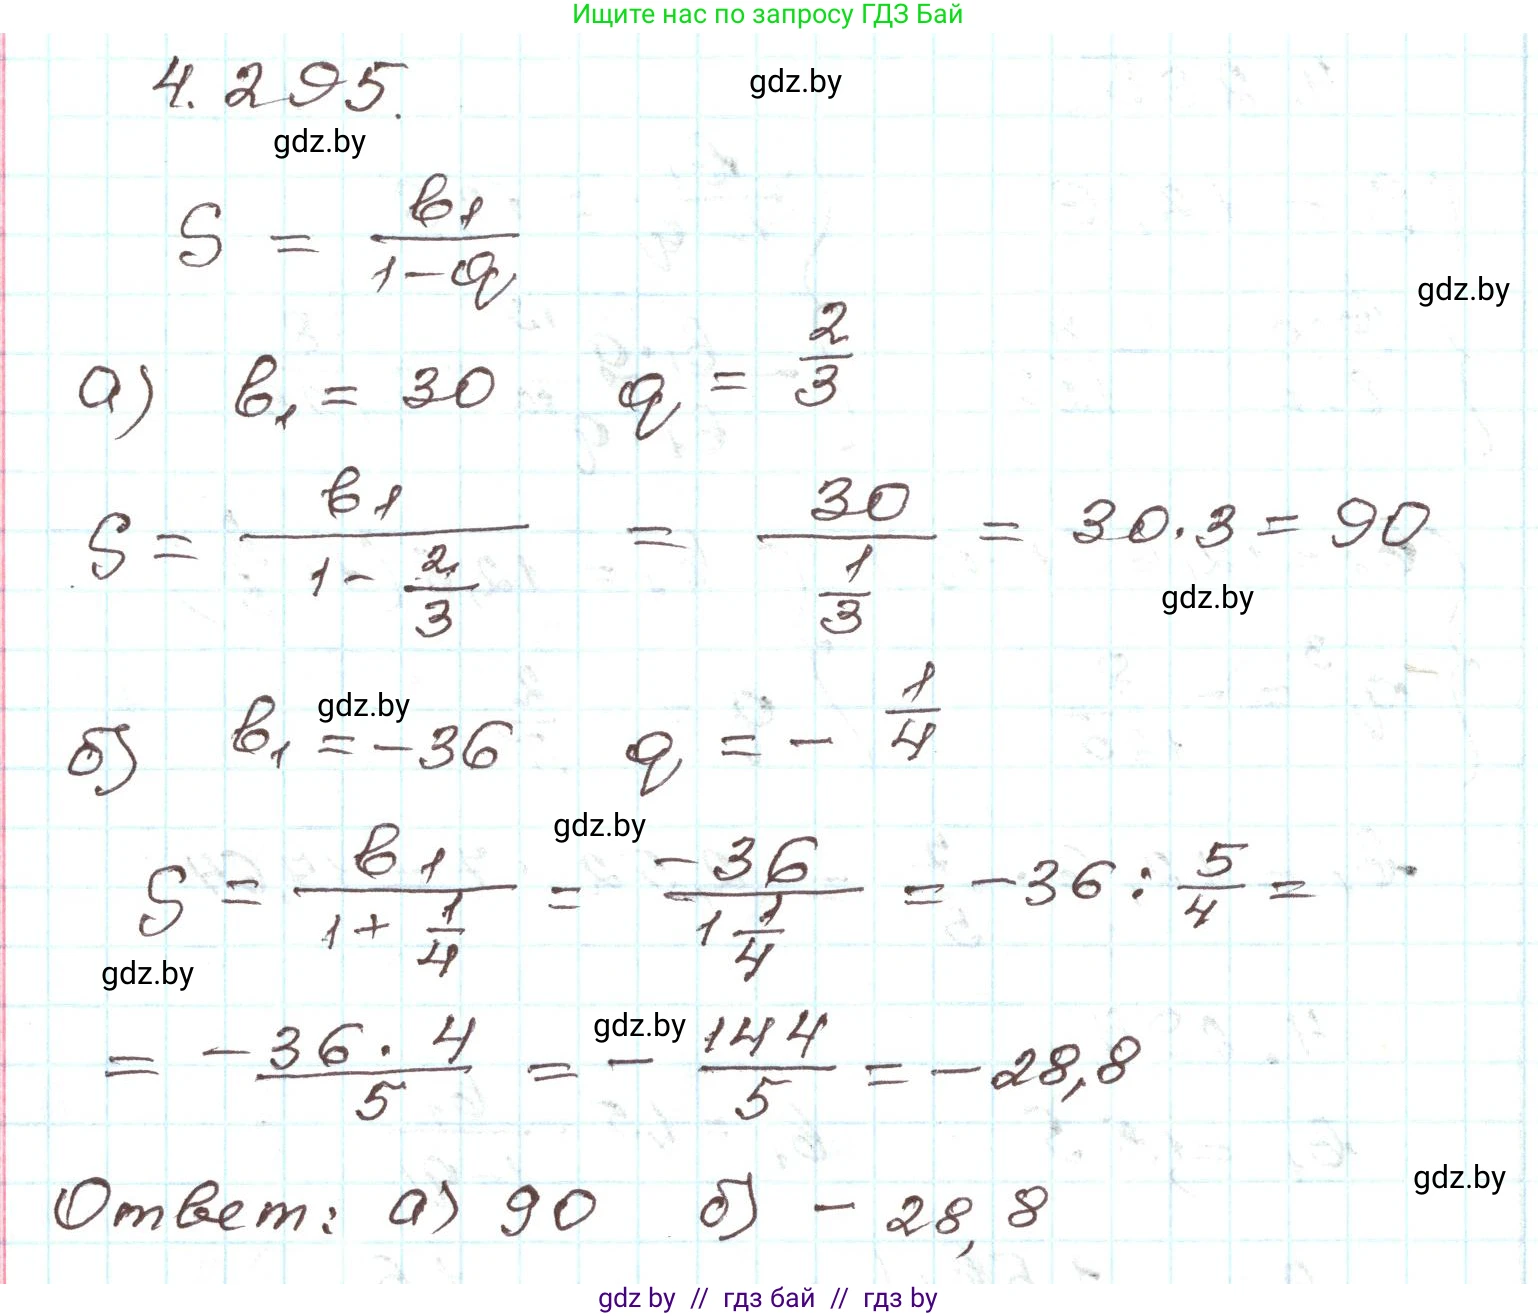 Ищите нас по запросу ГДЗ Бай
4.295.
gdz.by
gdz.by
S = в₁/(1-q)
gdz.by
а) в₁ = 30 q = 2/3
S = в₁/(1 - 2/3) = 30/(1/3) = 30·3 = 90
gdz.by
gdz.by
б) в₁ = -36 q = - 1/4
gdz.by
S = в₁/(1 + 1/4) = -36/(1 1/4) = -36 : 5/4 =
gdz.by
gdz.by
= - 36·4/5 = - 144/5 = - 28,8
gdz.by
Ответ: а) 90 б) - 28,8
gdz by // гдз бай // гдз by